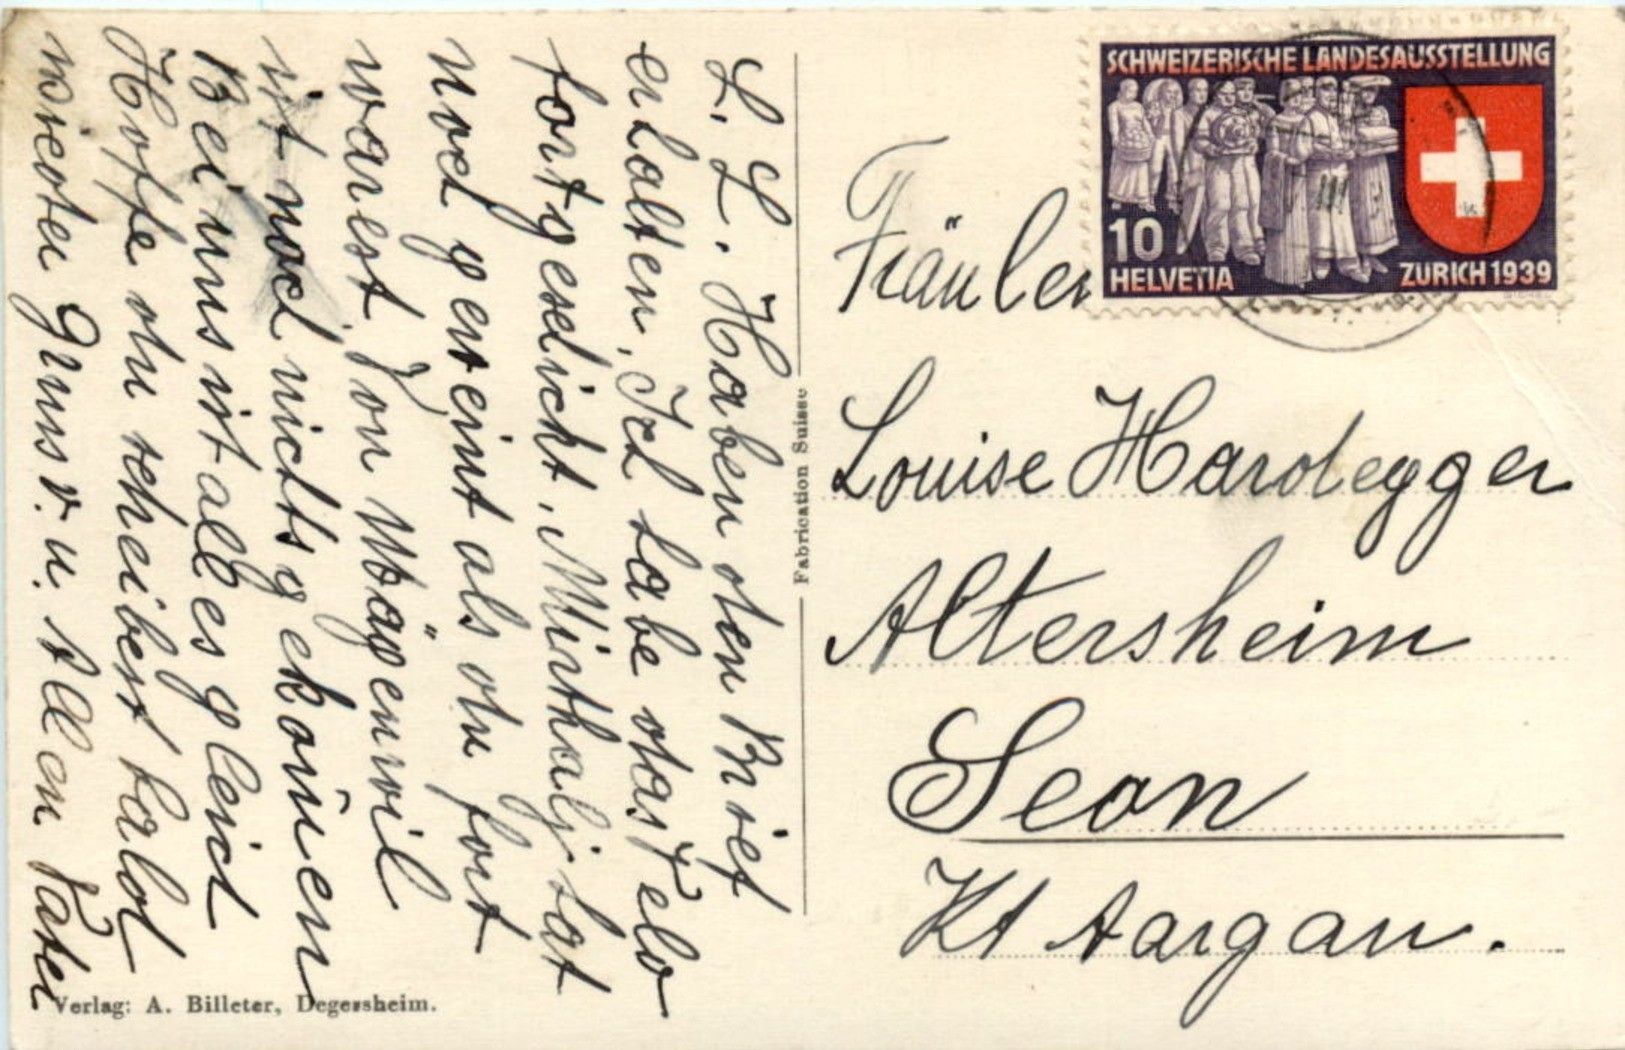 L. L. Haben den Brief
erhalten. Ich habe das Velo
fortgeschickt. Mirthalj hat
noch geweint als du fort
warest. Von Wägenwil
ist noch nichts gekom̄en
Bei uns ist alles gleich
Hoffe du schreibest bald
wieder Gruss v. u. Allen Vater
Verlag: A. Billeter, Degersheim.
Fabrication Suisse
SCHWEIZERISCHE LANDESAUSSTELLUNG
10
HELVETIA
ZÜRICH 1939
Fräulei
Louise Hardegger
Altersheim
Seon
Kt Aargau.